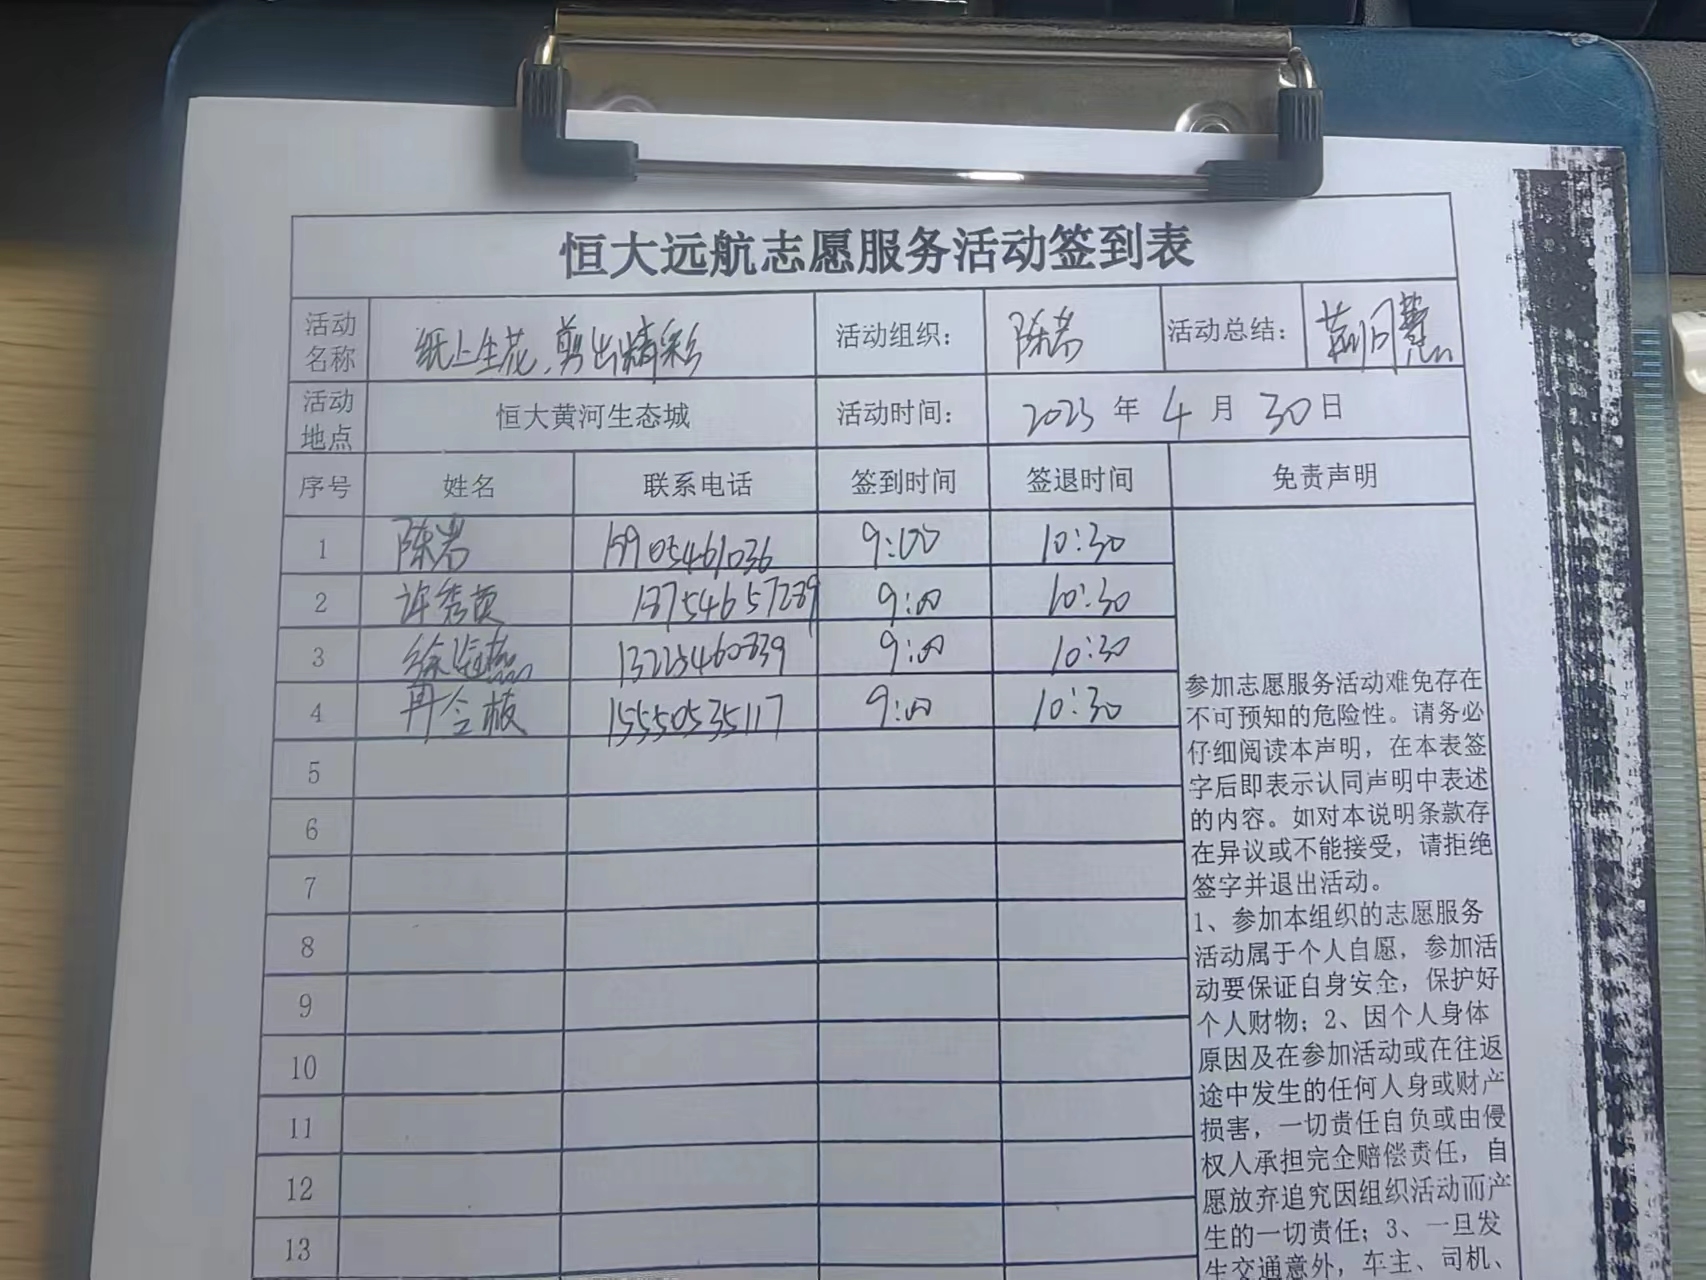 恒大远航志愿服务活动签到表
活动名称 纸上生花,剪出精彩 活动组织: 陈岩 活动总结:
活动地点 恒大黄河生态城 活动时间: 2023 年 4 月 30 日
序号 姓名 联系电话 签到时间 签退时间 免责声明
1 陈岩 15905461036 9:00 10:30
2 许秀贞 18754657289 9:00 10:30
3 9:00 10:30
4 15550535117 9:00 10:30
5
6
7
8
9
10
11
12
13
参加志愿服务活动难免存在
不可预知的危险性。请务必
仔细阅读本声明，在本表签
字后即表示认同声明中表述
的内容。如对本说明条款存
在异议或不能接受，请拒绝
签字并退出活动。
1、参加本组织的志愿服务
活动属于个人自愿，参加活
动要保证自身安全，保护好
个人财物；2、因个人身体
原因及在参加活动或在往返
途中发生的任何人身或财产
损害，一切责任自负或由侵
权人承担完全赔偿责任，自
愿放弃追究因组织活动而产
生的一切责任；3、一旦发
生交通意外，车主、司机、